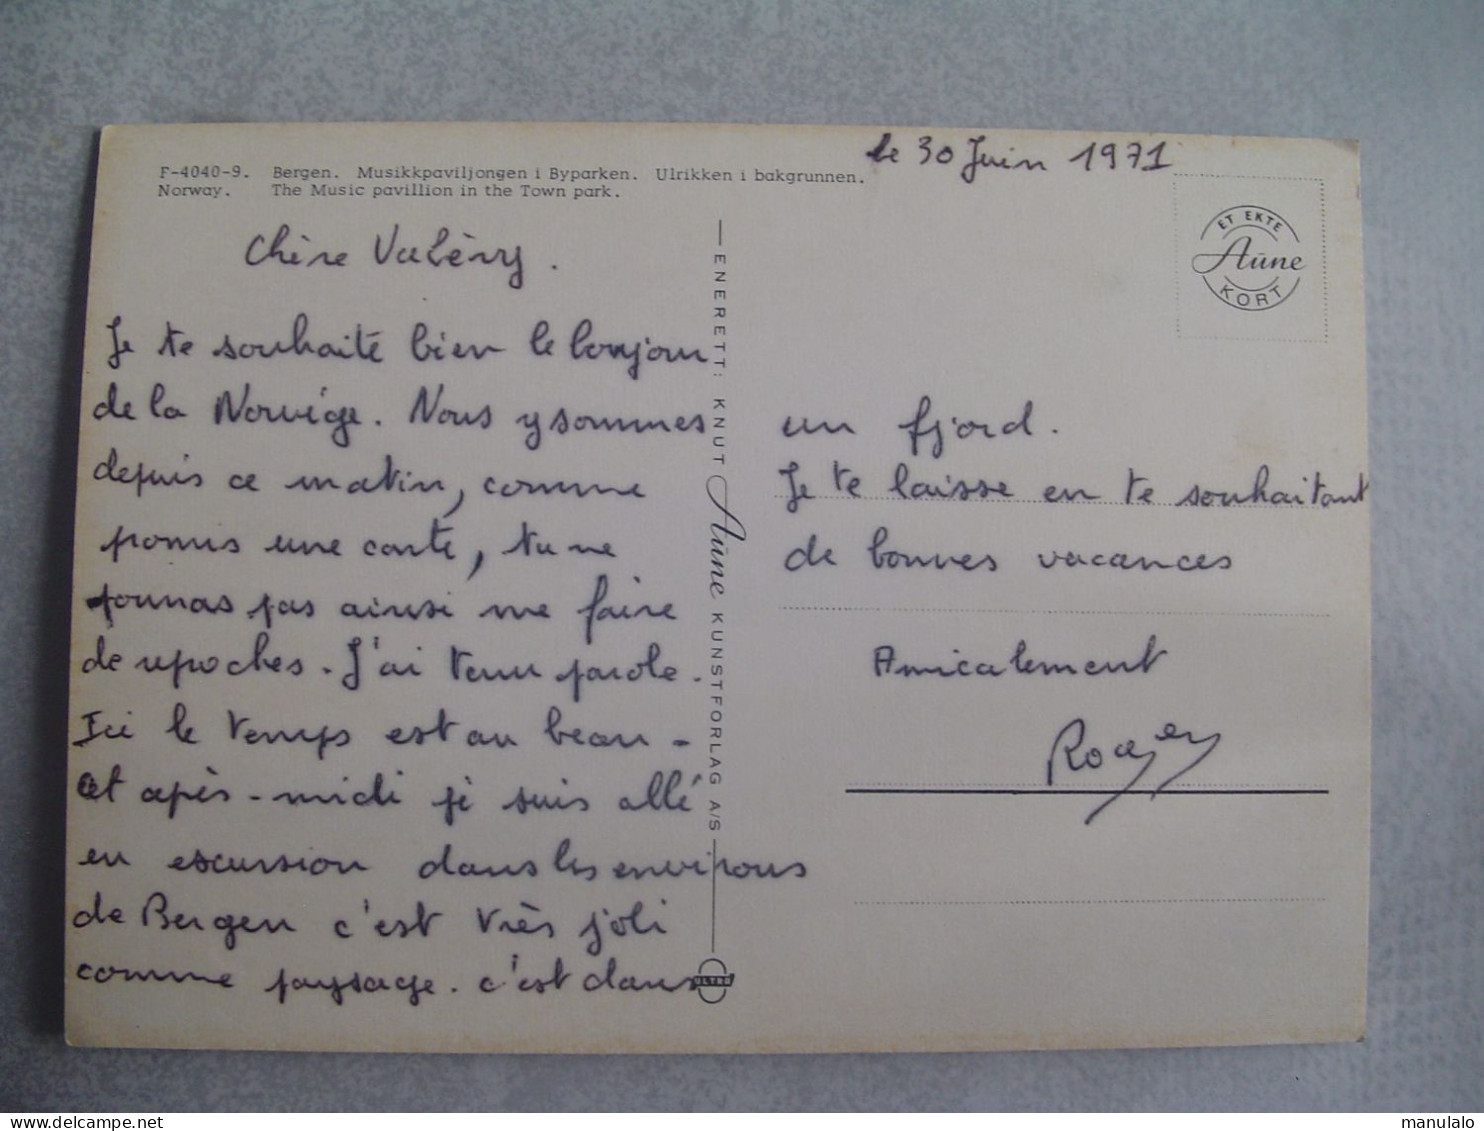 le 30 Juin 1971
F-4040-9. Bergen. Musikkpaviljongen i Byparken. Ulrikken i bakgrunnen.
Norway. The Music pavillion in the Town park.
Chère Valèry.
Je te souhaite bien le bonjour
de la Norvége. Nous y sommes
depuis ce matin, comme
promis une carte, tu ne
pourras pas ainsi me faire
de reproches. J'ai tenu parole.
Ici le temps est au beau -
et après-midi je suis allé
en escursion dans les environs
de Bergen c'est très joli
comme paysage. c'est dans
un fjord.
Je te laisse en te souhaitant
de bonnes vacances
Amicalement
Roger
ENERETT: KNUT Aūne KUNSTFORLAG A/S
ET EKTE
Aūne
KORT
www.delcampe.net
manulalo